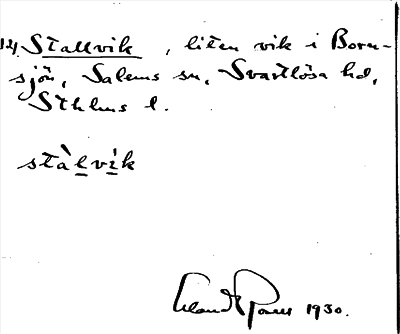 12). Stallvik, liten vik i Born-
sjön, Salems sn, Svartlösa hd,
Sthlms l.
stàlvík
1930.